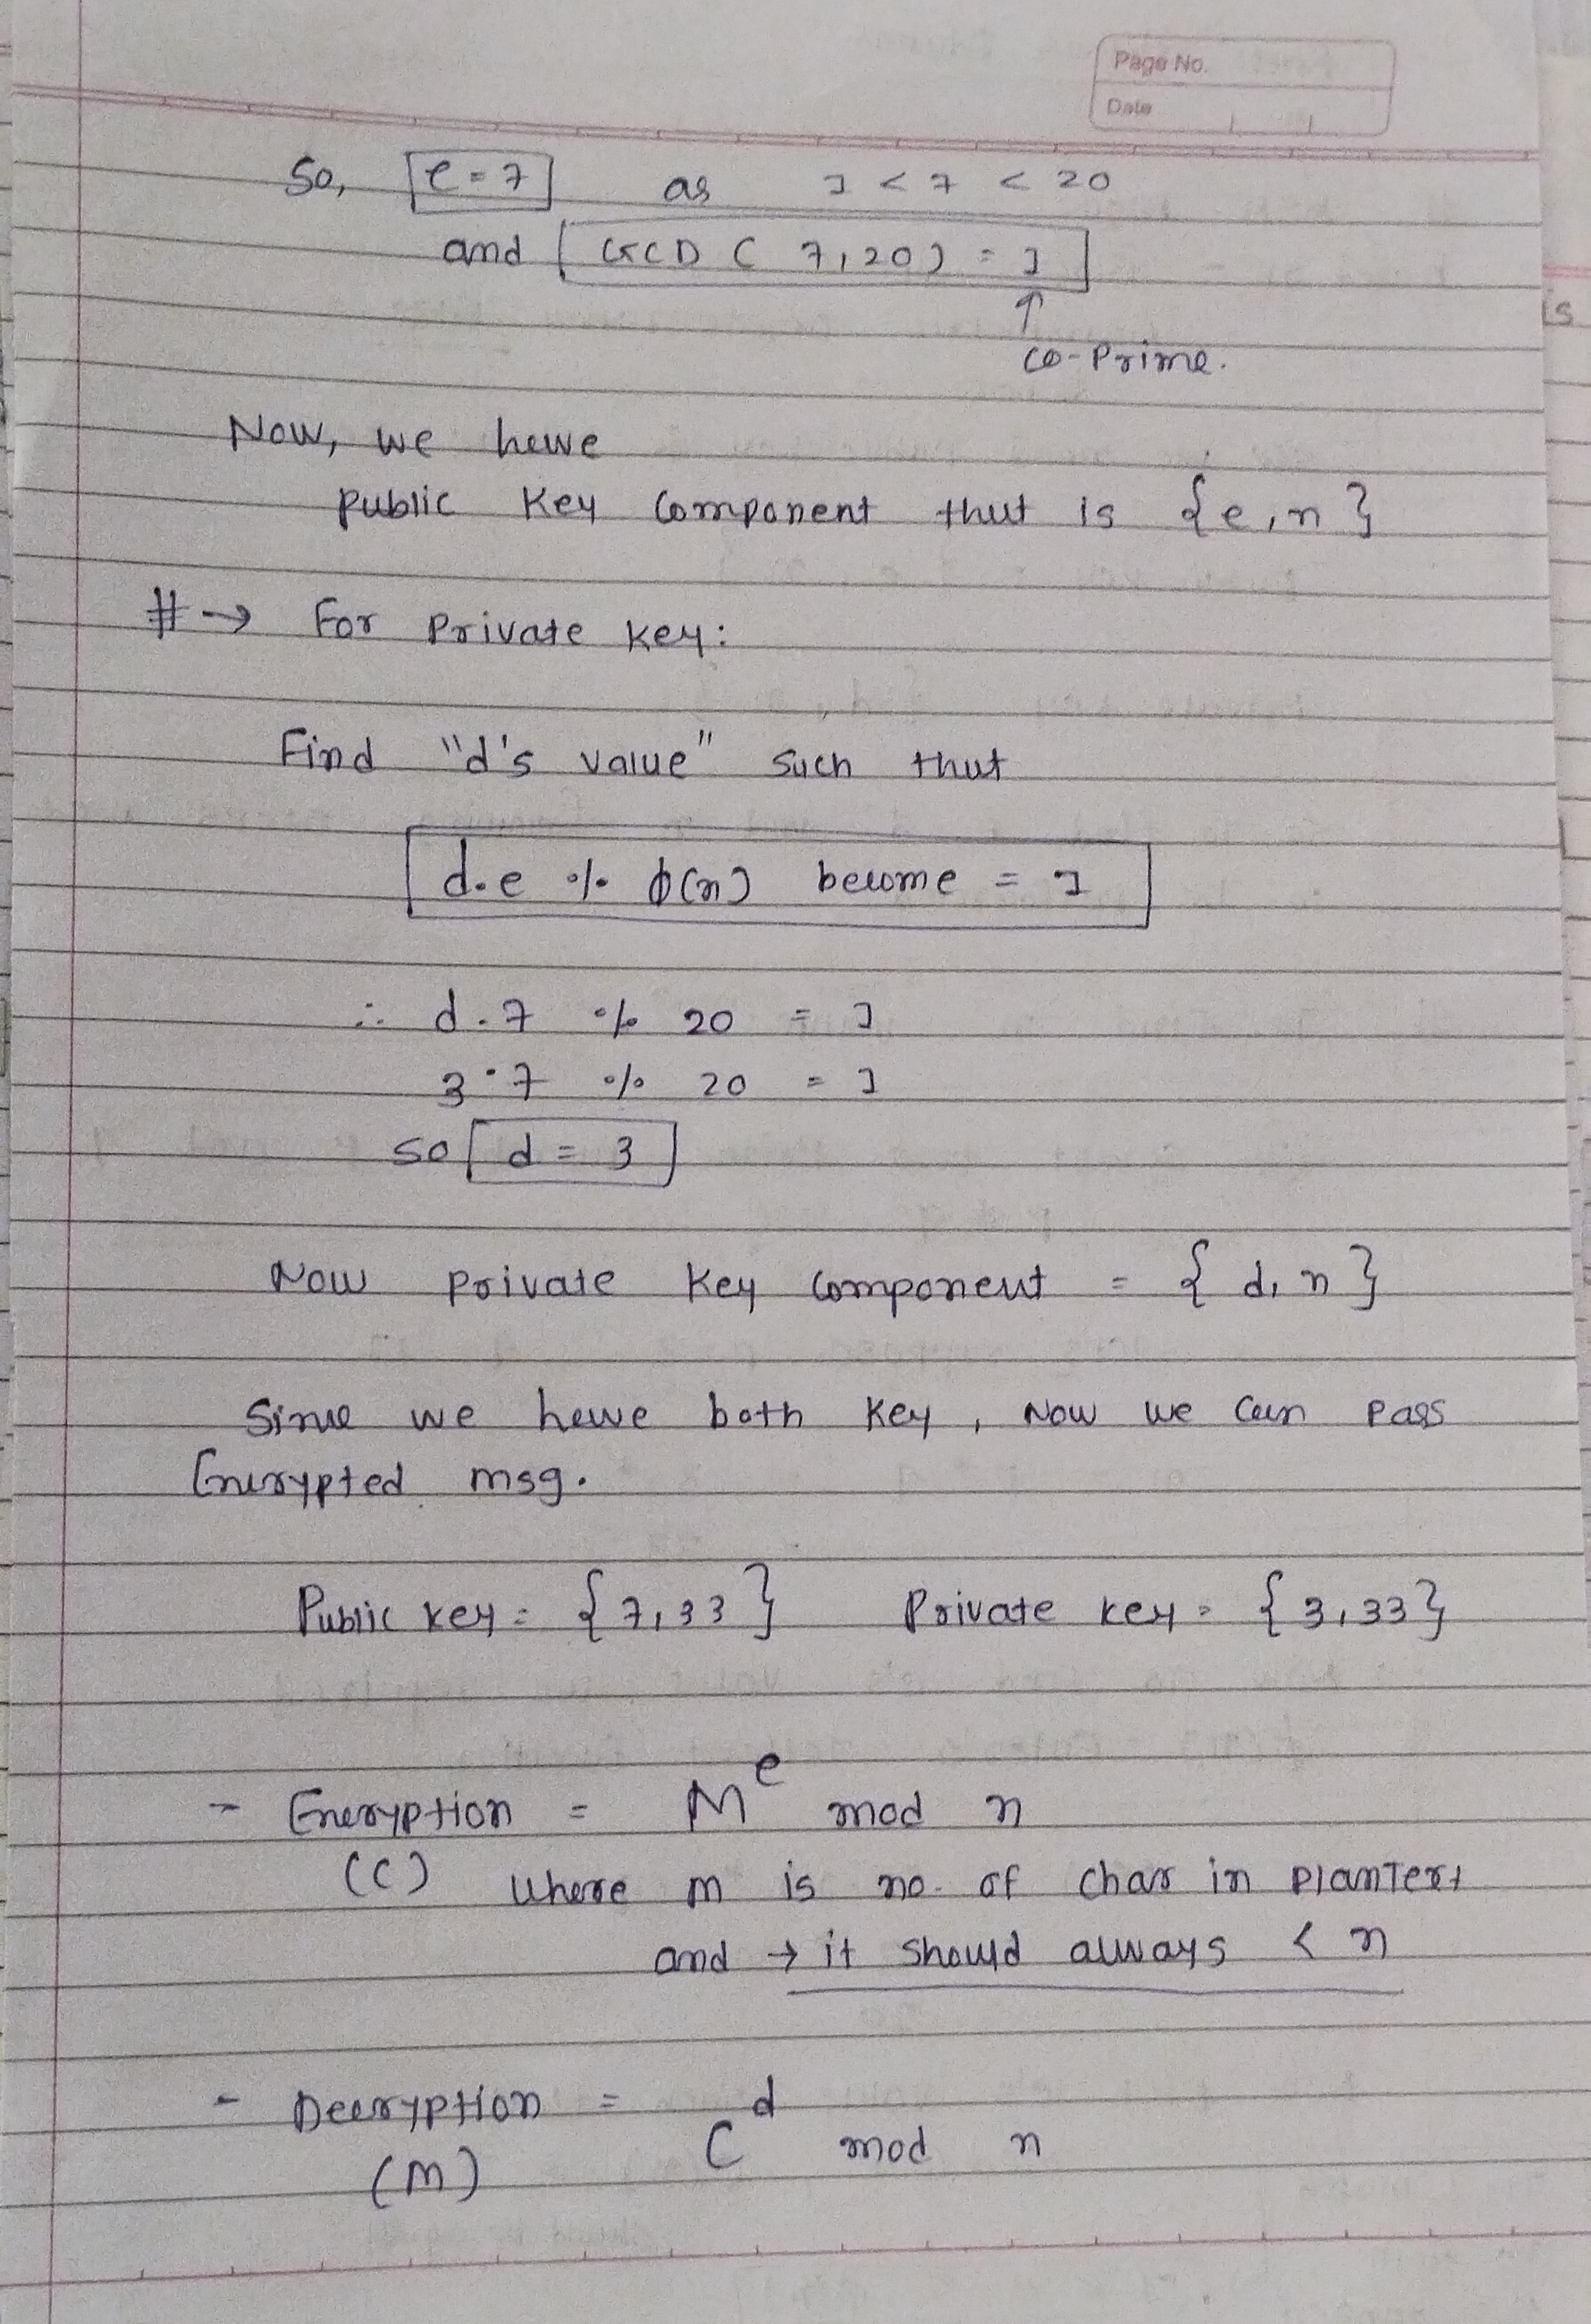 Page No.
Date
So, e = 7 as 1 < 7 < 20
and GCD ( 7, 20) = 1
↑
Co-Prime.
Now, we have
Public Key Component that is {e, n}
# → For Private Key:
Find "d's value" such that
d.e % ϕ(n) become = 1
∴ d.7 % 20 = 1
3.7 % 20 = 1
so d = 3
Now Private Key Component = { d, n }
Since we have both Key, Now we can pass
Encrypted msg.
Public Key = {7, 33} Private Key = {3, 33}
- Encryption = M^e mod n
(C) Where m is no. of char in PlanText
and → it should always < n
- Decryption = C^d mod n
(M)
is